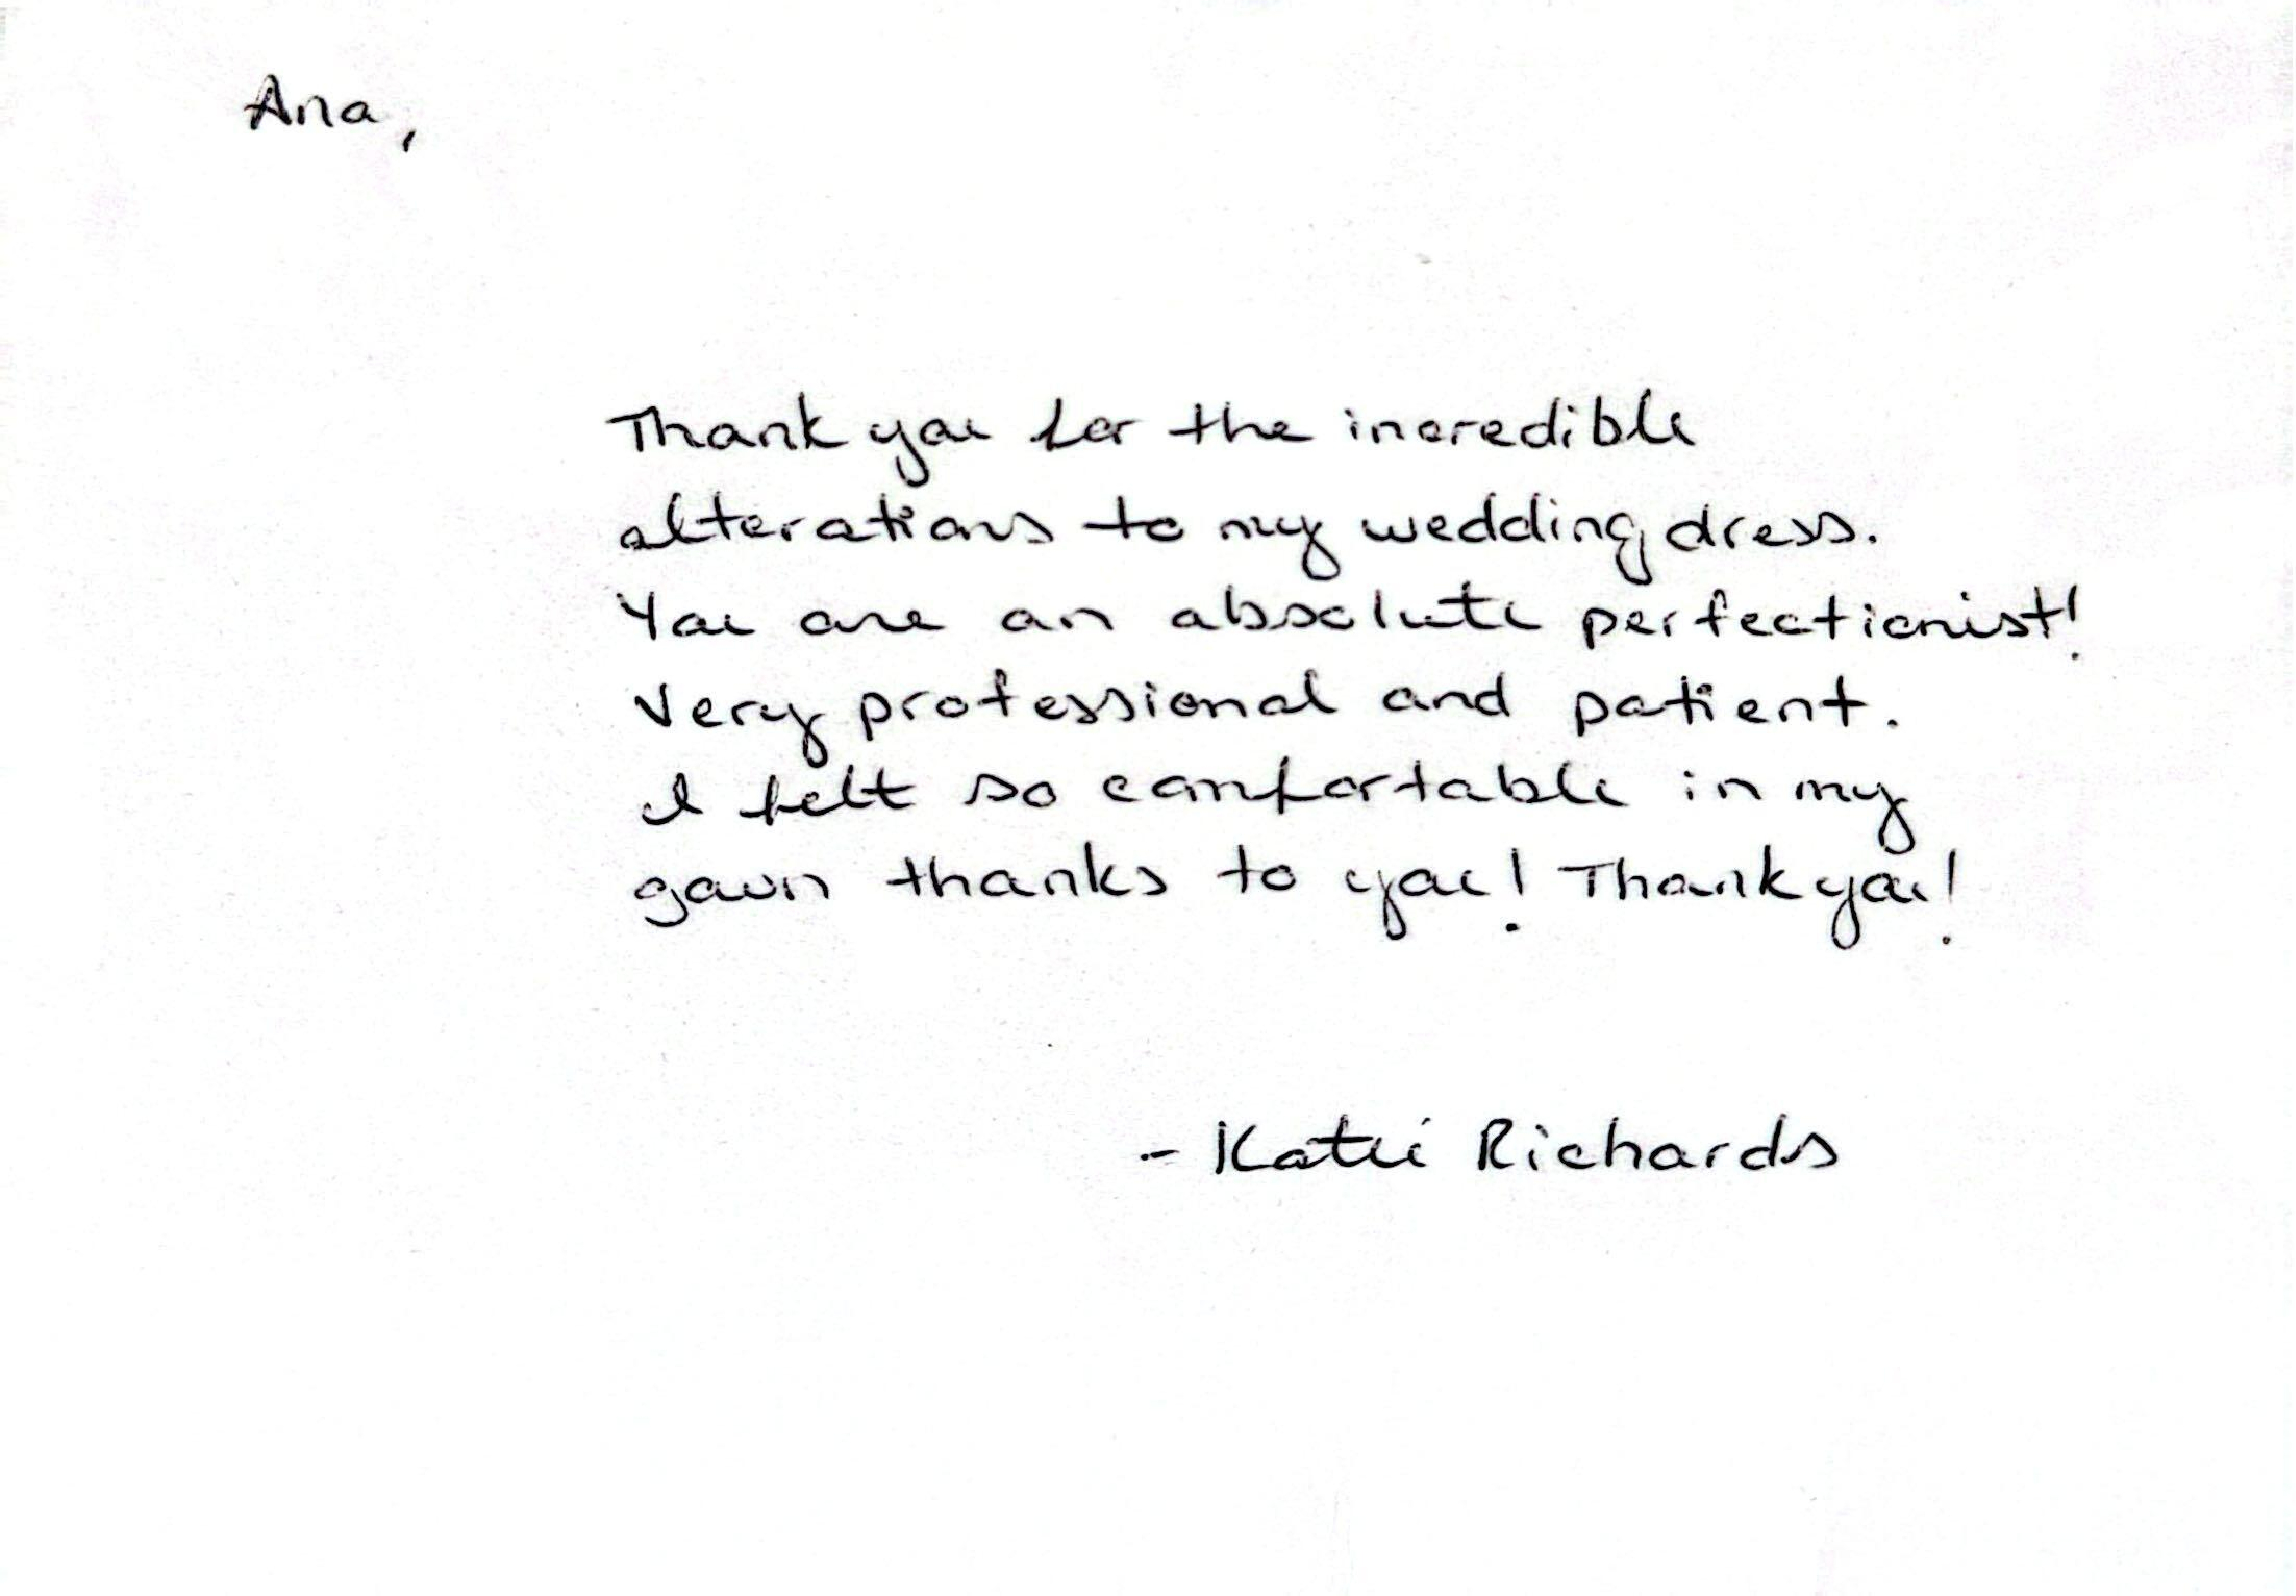 Ana,
Thank you for the incredible
alterations to my wedding dress.
You are an absolute perfectionist!
Very professional and patient.
I felt so comfortable in my
gown thanks to you! Thank you!
- Katie Richards